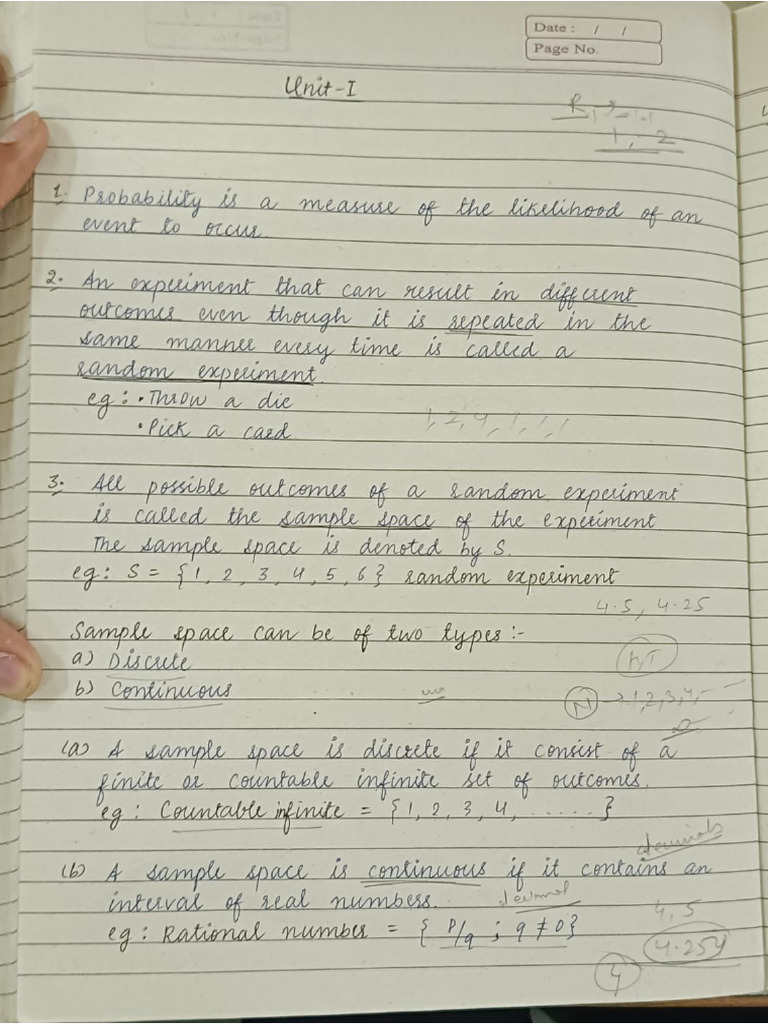 Date : / /
Page No.
Unit-I
1, 2
1. Probability is a measure of the likelihood of an
event to occur
2. An experiment that can result in different
outcomes even though it is repeated in the
same manner every time is called a
random experiment.
eg : • Throw a die
• Pick a card
1, 2, 4, 1, 1, 1
3. All possible outcomes of a random experiment
is called the sample space of the experiment
The sample space is denoted by S.
eg : S = {1, 2, 3, 4, 5, 6} random experiment
4.5, 4.25
Sample space can be of two types :-
H, T
a) Discrete
b) Continuous
N → 1, 2, 3, 4, -
(a) A sample space is discrete if it consist of a
finite or countable infinite set of outcomes.
eg : Countable infinite = {1, 2, 3, 4, ......}
decimals
(b) A sample space is continuous if it contains an
interval of real numbers.
decimal
4, 5
eg : Rational number = { P/q ; q ≠ 0}
4.254
4